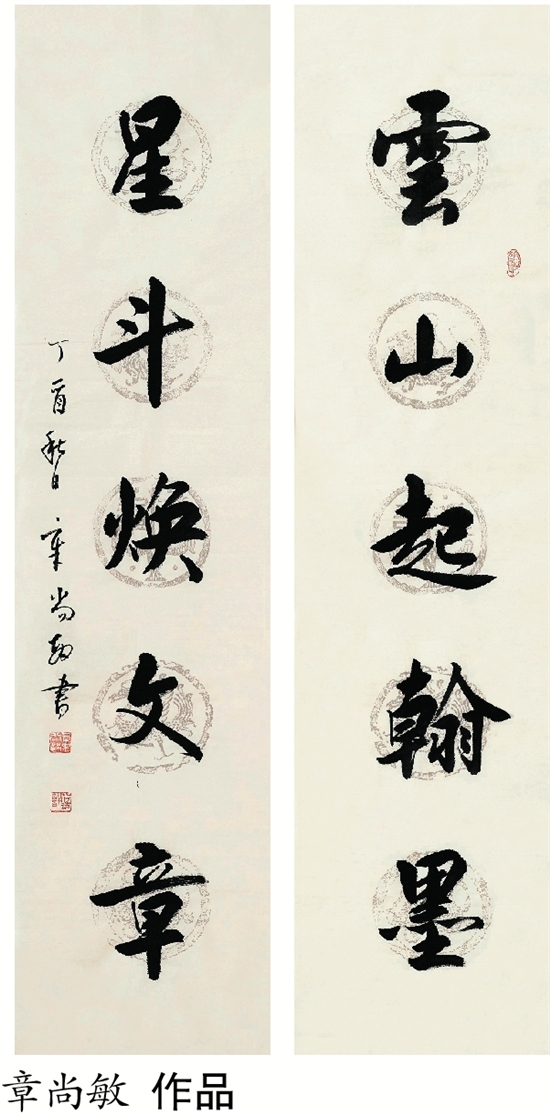 雲山起翰墨
星斗焕文章
丁酉秋日章尚敏書
章尚敏 作品